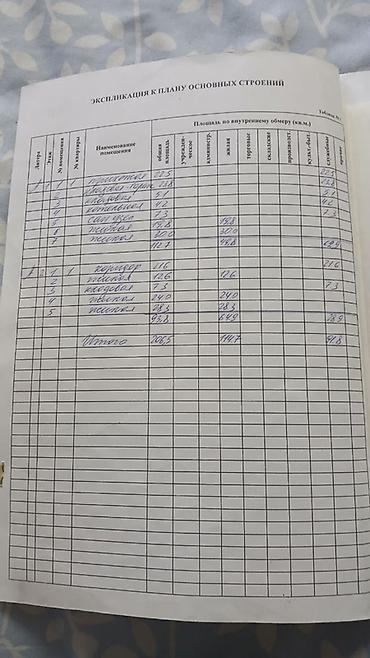 ЭКСПЛИКАЦИЯ К ПЛАНУ ОСНОВНЫХ СТРОЕНИЙ
Таблица №
Литера Этаж № помещения № квартиры Наименование помещения Площадь по внутреннему обмеру (кв.м.)
общая площадь учрежден-ческое администр. жилая торговые складские производст. культ.-быт. служебные прочие
1 1 1 прихожая 22.5 22.5
2 22.8 22.8
3 кладовая 5.1 5.1
4 котельная 4.2 4.2
5 сан узел 7.3 7.3
6 жилая 19.8 19.8
7 жилая 30.0 30.0
49.8
2 1 1 коридор 21.6 21.6
2 жилая 12.6 12.6
3 кладовая 7.3 7.3
4 жилая 24.0 24.0
5 жилая 28.3 28.3
93.8 64.9 28.9
Итого 206.5 114.7 91.8